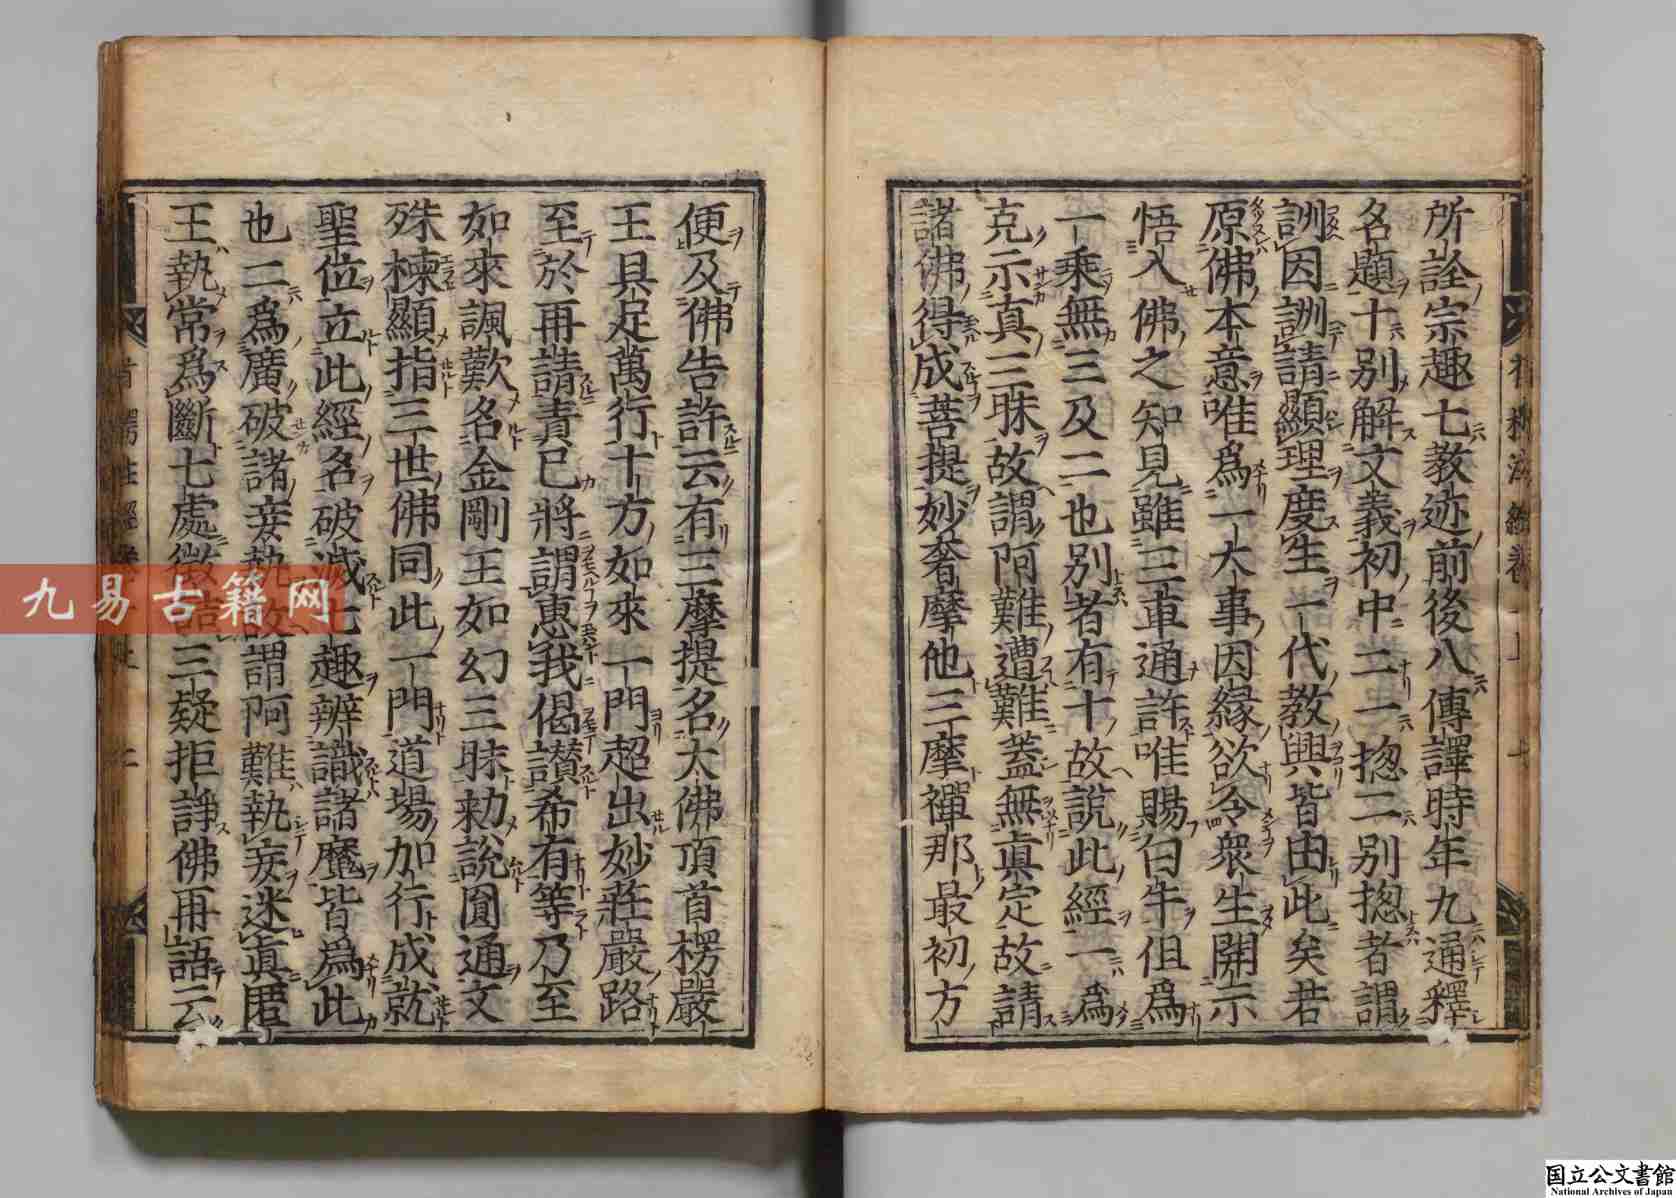 所詮宗趣七教迹前後八傳譯時年九通釋
名題十别解文義初中二一揔二别揔者謂
詶因詶請顯理度生一代教興皆由此矣若
原佛本意唯爲一大事因緣欲令衆生開示
悟入佛之知見雖三車通許唯賜白牛但爲
一乘無三及二也别者有十故説此經一爲
克示真三昧故謂阿難遭難蓋無真定故請
諸佛得成菩提妙奢摩他三摩禪那最初方
便及佛告許云有三摩提名大佛頂首楞嚴
王具足萬行十方如來一門超出妙莊嚴路
至於再請責已將謂惠我偈讃希有等乃至
如來諷歎名金剛王如幻三昧勑說圓通文
殊楝顯指三世佛同此一門道場加行成就
聖位立此經名破滅七趣辨識諸魔皆爲此
也二爲廣破諸妄執故謂阿難執妄迷真匿
王執常爲斷七處徵詰三疑拒諍佛再語云
九易古籍网
国立公文書館
National Archives of Japan